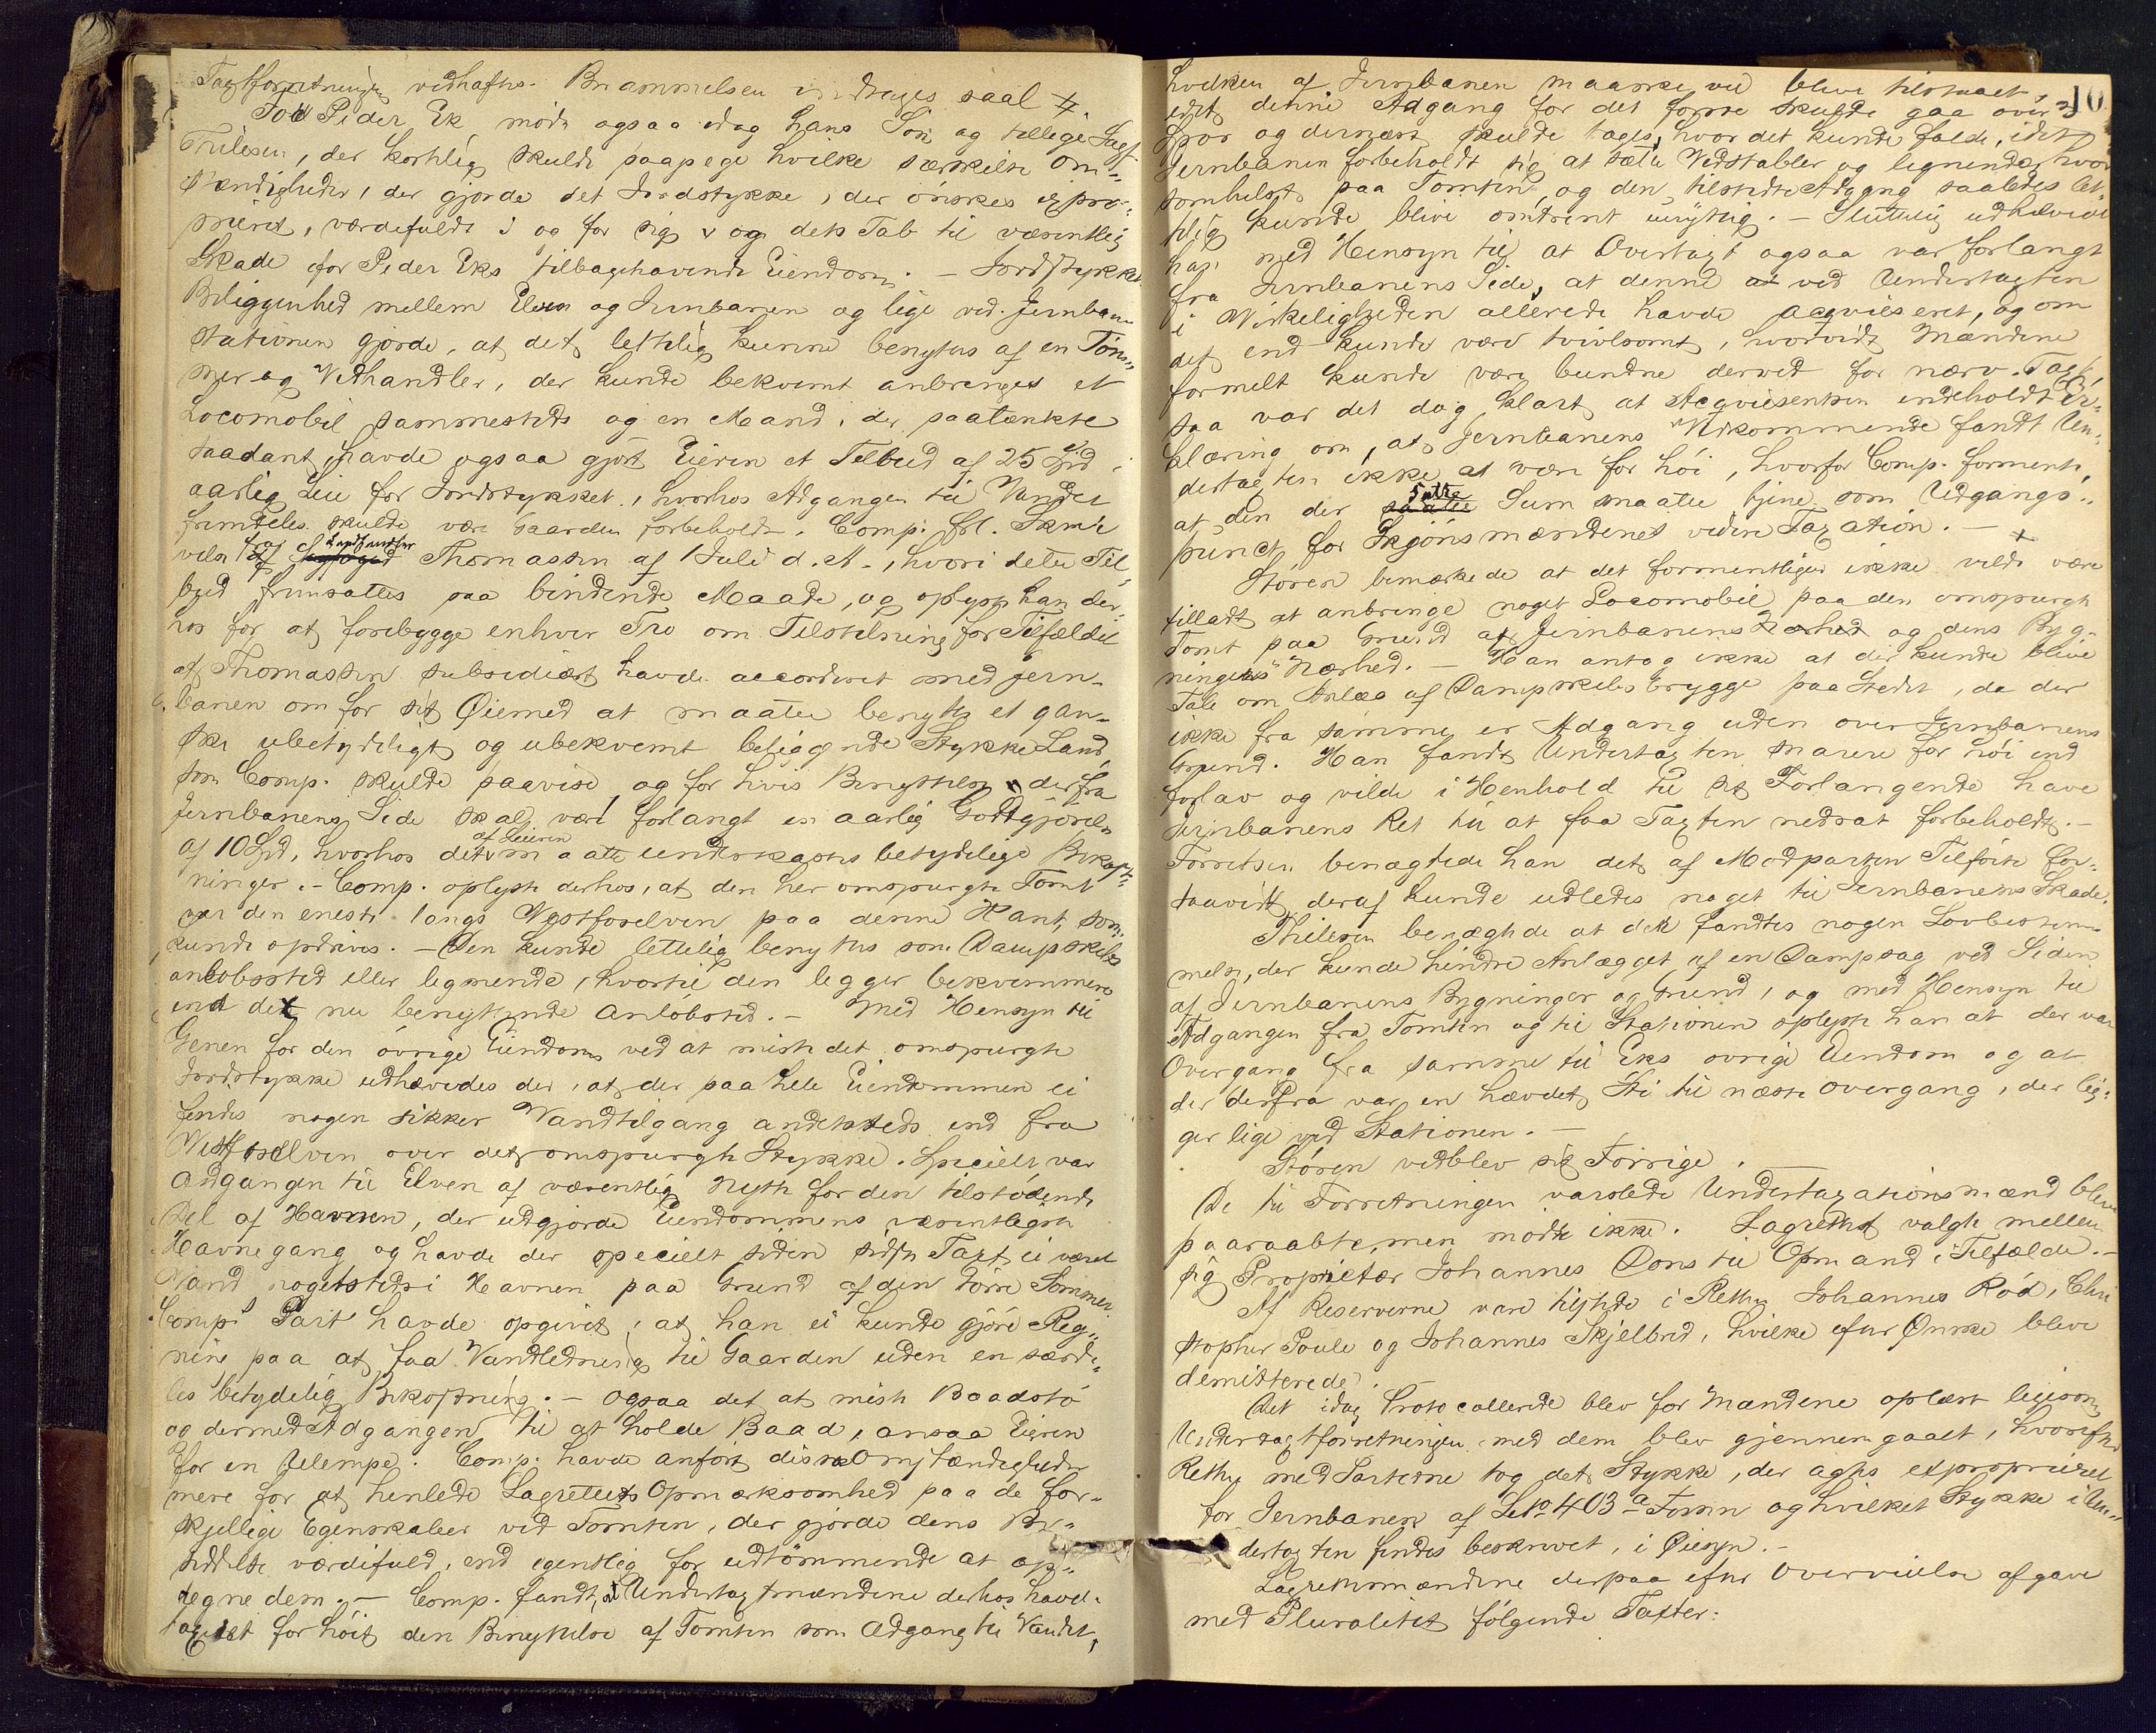 Taxtforretningen vedhæftes. Beramelsen inddrages saal #
For Peder Ek mødte ogsaa idag hans Søn og tillige Sagf.
Thilesen, der kortelig skulde paapege hvilke særskilte Om-
stændigheder, der gjorde det Jordstykke, der ønskes expro-
prieret, værdifuldt i og for sig og dets Tab til væsentlig
Skade for Peder Eks tilbagehavende Eiendom. – Jordstykkets
Beliggenhed mellem Elven og Jernbanen og lige ved Jernbane
stationen gjorde, at det lettelig kunne benyttes af en Tøm-
mer og Vedhandler, der kunde bekvemt anbringes et
Locomobil sammesteds og en Mand, der paatænkte
saadant, havde ogsaa gjort Eieren et Tilbud af 25 Spd i
aarlig Leie for Jordstykket, hvorhos Adgangen til Vandet
fremdeles skulde være Gaarden forbeholdt. Comp. frl. Skri-
velse fra Landhandler Thomassen af 1 Juli d. A., hvori dette Til-
bud fremsattes paa bindende Maade, og oplyste han der-
hos for at forebygge enhver Tro om Tilstelning for Tilfældet
at Thomassen subsidiært havde accorderet med Jern-
banen om for sit Øiemed at maatte benytte et gan-
ske ubetydeligt og ubekvemt beliggende Stykke Land,
som Comp. skulde paavise og for hvis Benyttelse der fra
Jernbanens Side skal være forlangt en aarlig Godtgjørelse
af 10 Spd, hvorhos det af Leieren maatte underkastes betydelige Bekost-
ninger. – Comp. oplyste derhos, at den her omspurgte Tomt
var den eneste langs Vestfoselven paa denne Kant, som
kunde opdrives. – Den kunde lettelig benyttes som Dampskibs
anløbssted eller lignende, hvortil den ligger bekvemmere
end det nu benyttende Anløbsted. – Med Hensyn til
Genen for den øvrige Eiendom ved at miste det omspurgte
Jordstykke udhævedes der, at der paa hele Eiendommen ei
fandes nogen sikker Vandtilgang andetsteds end fra
Vestfoselven over det omspurgte Stykke. Specielt var
Adgangen til Elven af væsentlig Nytte for den tilstødende
Del af Havnen, der udgjorde Eiendommens væsentligste
Havnegang og havde der specielt siden sidste Taxt ei været
Vand nogetsteds i Havnen paa Grund af den tørre Sommer.
Comps Part havde opgivet, at han ei kunde gjøre Reg-
ning paa at faa Vandledning til Gaarden uden en særde-
les betydelig Bekostning. – Ogsaa det at miste Baadstø
og dermed Adgangen til at holde Baad, ansaa Eieren
for en Ulempe. Comp. havde anført disse Omstændigheder
mere for at henlede Lagrettets Opmærksomhed paa de for-
skjellige Egenskaber ved Tomten, der gjorde dens Be-
siddelse værdifuld, end egentlig for udtømmende at op-
regne dem. – Comp. fandt, at Undertaxtmændene derhos havde
taxeret for høit den Benyttelse af Tomten som Adgang til Vandet,
10
hvilken af Jernbanen maaske vil blive tilstaaet,
idet denne Adgang for det første skulde gaa over 2
Spor og dernæst skulde tages, hvor det kunde falde, idet
Jernbanen forbeholdt sig at sætte Vedstabler og lignende hvor
somhelst paa Tomten, og den tilstedte Adgang saaledes let-
telig kunde blive omtrent unyttig. – Sluttelig udhævede
han med Hensyn til at Overtaxt ogsaa var forlangt
fra Jernbanens Side, at denne ved Undertaxten
i Virkeligheden allerede havde acqviesceret, og om
det end kunde være tvivlsomt, hvorvidt Mændene
formelt kunde være bundne derved for nærv. Taxt,
saa var det dog klart at Acqviescentsen indeholdt Er-
klæring om, at Jernbanens Vedkommende fandt Un-
dertaxten ikke at være for høi, hvorfor Comp. formente,
at den der satte Sum maatte tjene som Udgangs-
punct for Skjønsmændenes videre Taxation. –
Støren bemærkede at det formentligen ikke vilde være
tilladt at anbringe noget Locomobil paa den omspurgte
Tomt paa Grund af Jernbanens Nærhed og dens Byg-
ningers Nærhed. – Han antog ikke at der kunde blive
Tale om Anlæg af Dampskibsbrygge paa Stedet, da der
ikke fra samme er Adgang uden over Jernbanens
Grund. Han fandt Undertaxten snarere for høi end
for lav og vilde i Henhold til sit Forlangende have
Jernbanens Ret til at faa Taxten nedsat forbeholdt. –
Forresten benægtede han det af Modparten Tilførte for-
saavidt deraf kunde udledes noget til Jernbanens Skade.
Thilesen benægtede at der fandtes nogen Lovbestem-
melse, der kunde hindre Anlægget af en Dampsag ved Siden
af Jernbanens Bygninger og Grund, og med Hensyn til
Adgangen fra Tomten og til Stationen oplyste han at der var
Overgang fra samme til Eks øvrige Eiendom og at
der derfra var en hævdet Sti til næste Overgang, der lig-
ger lige ved Stationen. –
Støren vedblev sit Forrige.
De til Forretningen varslede Undertaxationsmænd bleve
paaraabte, men mødte ikke. Lagrettet valgte mellem
sig Proprietær Johannes Dons til Opmand i Tilfælde. –
Af Reserverne vare tilstede i Retten Johannes Rød, Chri
stopher Poule og Johannes Skjelbred, hvilke efter Ønske bleve
demitterede.
Det idag Protocollerede blev for Mændene oplæst ligesom
Undertaxtforretningen med dem blev gjennemgaaet, hvorefter
Retten med Parterne tog det Stykke, der agtes exproprieret
for Jernbanen af Lno 403a Fossen og hvilket Stykke i Un-
dertaxten findes beskrevet, i Øiesyn. –
Lagrettesmændene derpaa efter Overveielse afgave
med Pluralitet følgende Taxter: